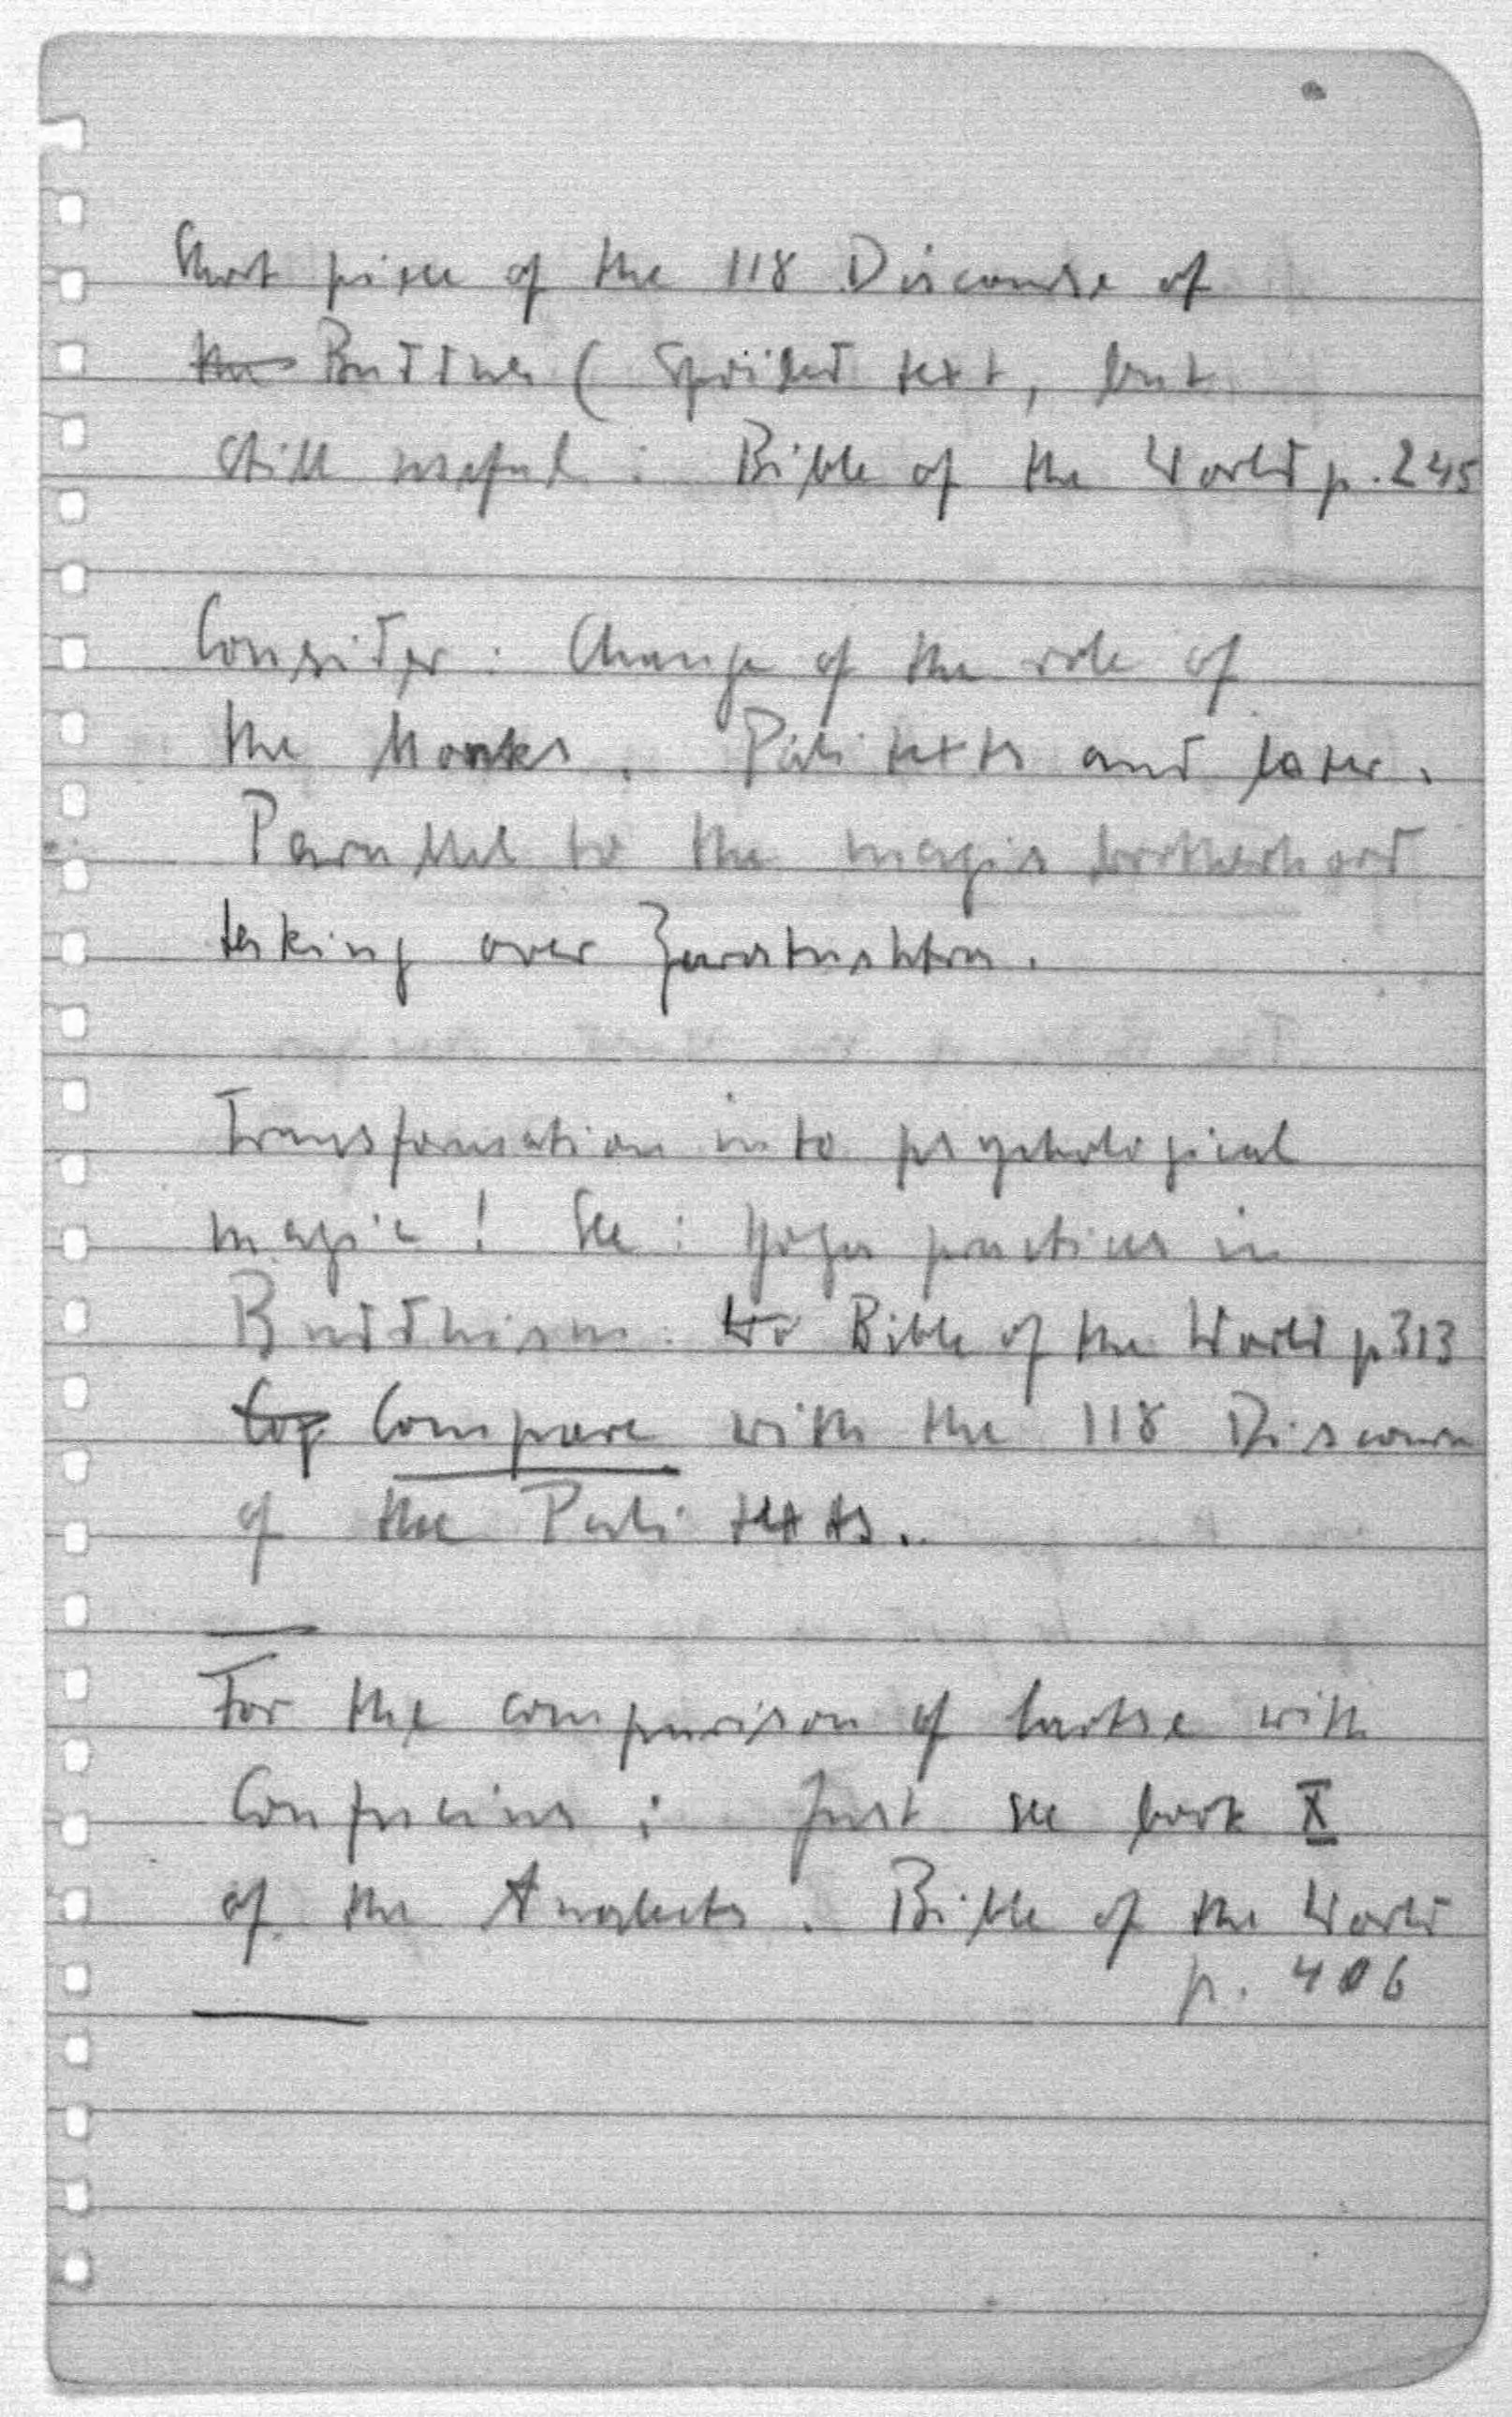 Short piece of the 118 Discourse of
the Buddha (Spoiled text, but
still useful: Bible of the World p. 245
Consider: Change of the role of
the Monks. Pali texts and later.
Parallel to the magis brotherhood
taking over Zaratushtra.
Transformation into psychological
magic! See: Yoga practices in
Buddhism. to Bible of the World p 313
Cop Compare with the 118 Discours
of the Pali texts.
For the comparison of Laotse with
Confucius: Just see book X
of the Analects. Bible of the World
p. 406